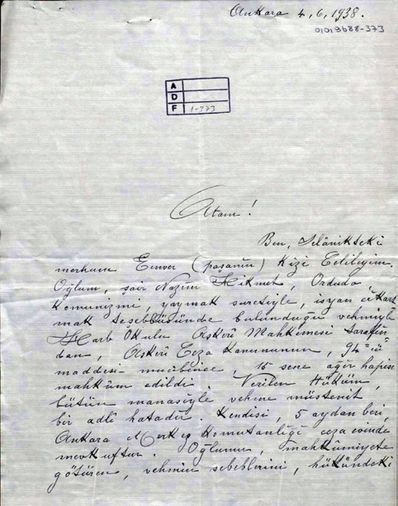 Ankara 4,6,1938.
01019688-373
A
D
F 1-973
Atam!
Ben, Selânikteki
merhum Enver (paşanın) Kizi Celileyim.
Oğlum, şair Nazım Hikmet, Orduda
Komunizmi yaymak suretiyle, isyan çıkart
mak teşebbüsünde bulunduğu vehmiyle
Harb Okulu Askerî Mahkemesi tarafın
dan, Askerî Ceza Kanununun, 94 üncü
maddesi mucibince 15 sene ağır hapise
mahkûm edildi. Verilen Hüküm,
bütün manasiyle vehme müstenit
bir adlî hatadır. Kendisi, 5 aydan beri,
Ankara Merkez Komutanliği ceza evinde
mevkuftur. Oğlumu, mahkûmiyete
götüren, vehmin sebeblerini, hükümdeki